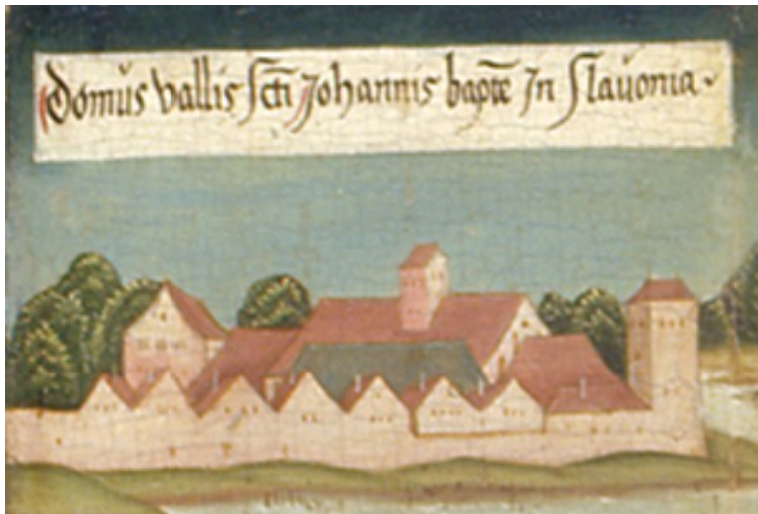 domus vallis sc̄ti Johannis bapt̄e In Slavonia